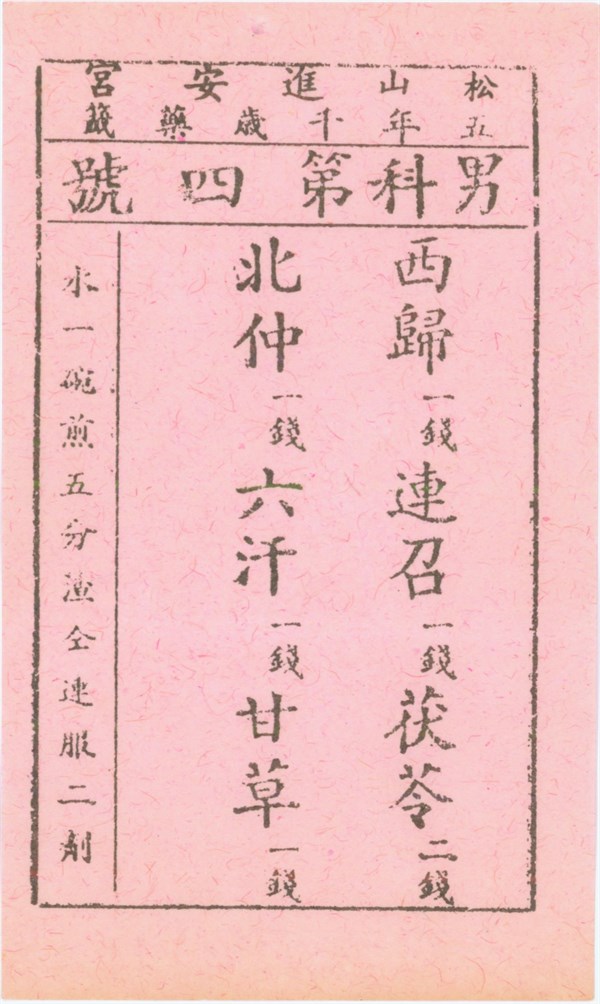 松山進安宮
五年千歲藥籤
男科第四號
西歸一錢連召一錢茯苓二錢
北仲一錢六汗一錢甘草一錢
水一碗煎五分渣仝連服二劑